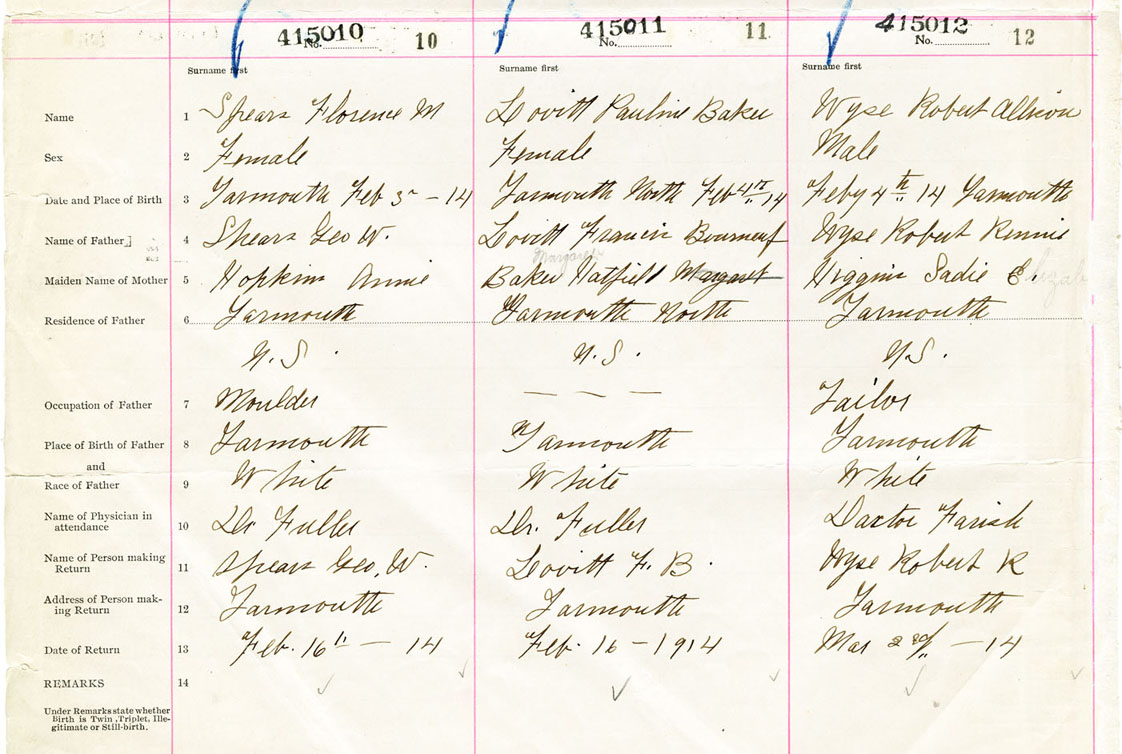 415010 10 415011 11 415012 12
No. No. No.
Surname first Surname first Surname first
Name 1 Spears Florence M Lovitt Pauline Baker Wyse Robert Allison
Sex 2 Female Female Male
Date and Place of Birth 3 Yarmouth Feb 3 - 14 Yarmouth North Feb 4th 14 Feby 4th 14 Yarmouth
Margaret
Name of Father 4 Spears Geo W. Lovitt Francis Bourneuf Wyse Robert Rennie
Maiden Name of Mother 5 Hopkins Annie Baker Hatfield Margaret Higgins Sadie E.
Residence of Father 6 Yarmouth Yarmouth North Yarmouth
N.S. N.S. N.S.
Occupation of Father 7 Moulder — — — Tailor
Place of Birth of Father 8 Yarmouth Yarmouth Yarmouth
and
Race of Father 9 White White White
Name of Physician in
attendance 10 Dr Fuller Dr. Fuller Doctor Farish
Name of Person making
Return 11 Spears Geo. W. Lovitt F. B. Wyse Robert R
Address of Person mak-
ing Return 12 Yarmouth Yarmouth Yarmouth
Date of Return 13 Feb. 16th - 14 Feb. 16 - 1914 Mar 2nd - 14
REMARKS 14
Under Remarks state whether
Birth is Twin, Triplet, Ille-
gitimate or Still-birth.